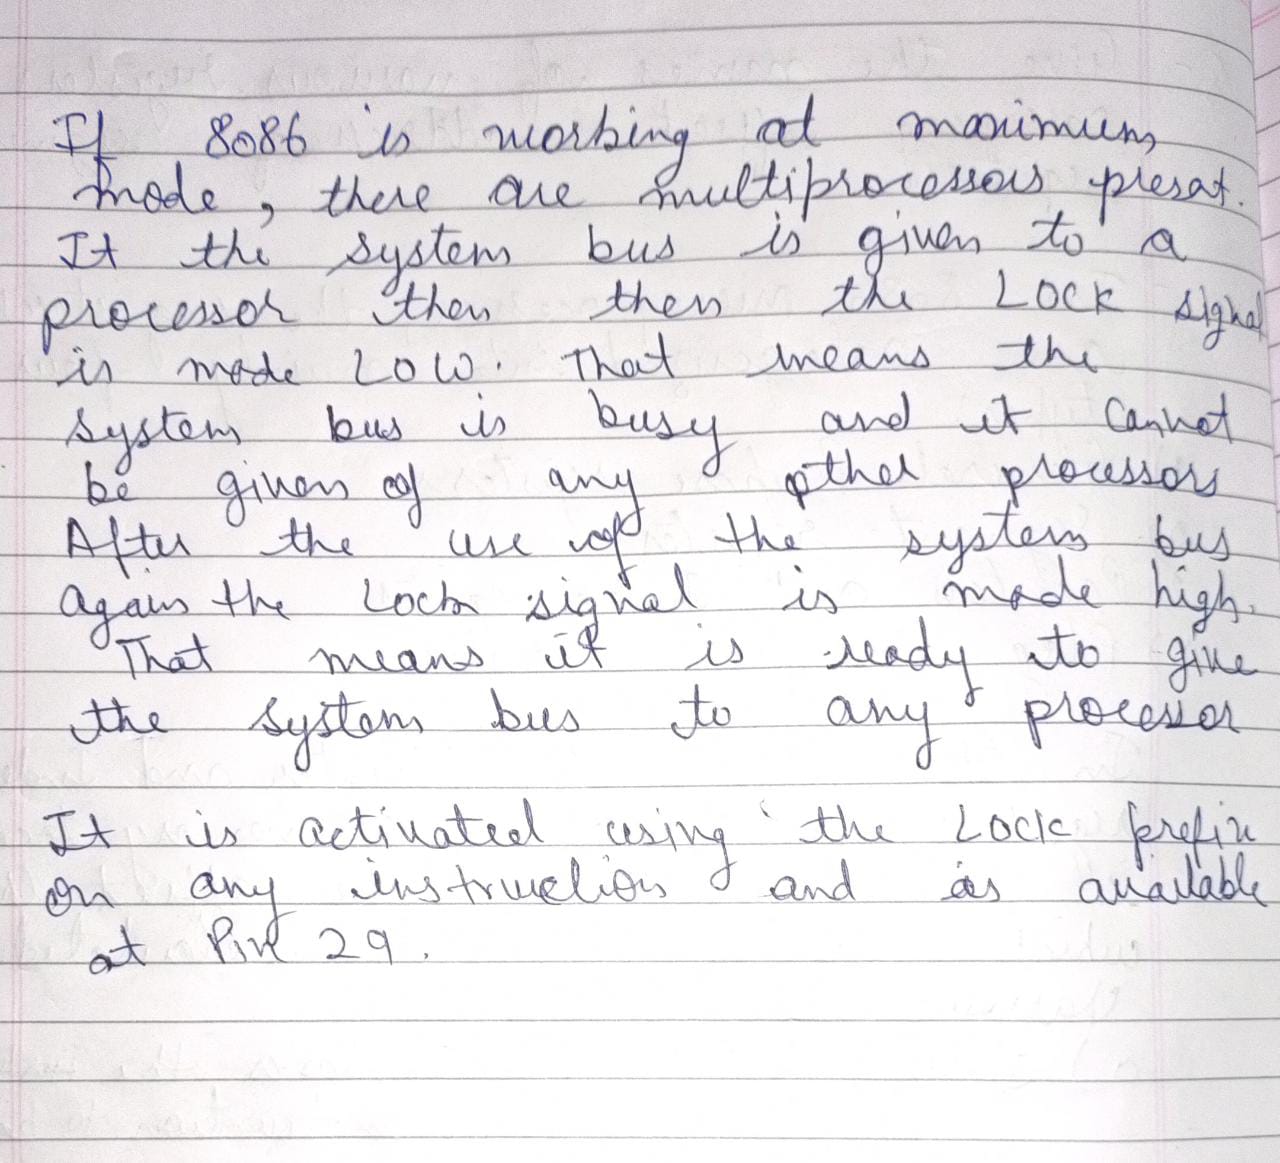 If 8086 is working at maximum
mode, there are multiprocessors presat.
It the system bus is given to a
processor then then the LOCK signal
is made LOW. That means the
system bus is busy and it cannot
be given of any other processors
After the use of the system bus
again the Lock signal is made high.
That means it is ready to give
the system bus to any processor
It is activated using the LOCK prefix
on any instruction and is available
at Pin 29.